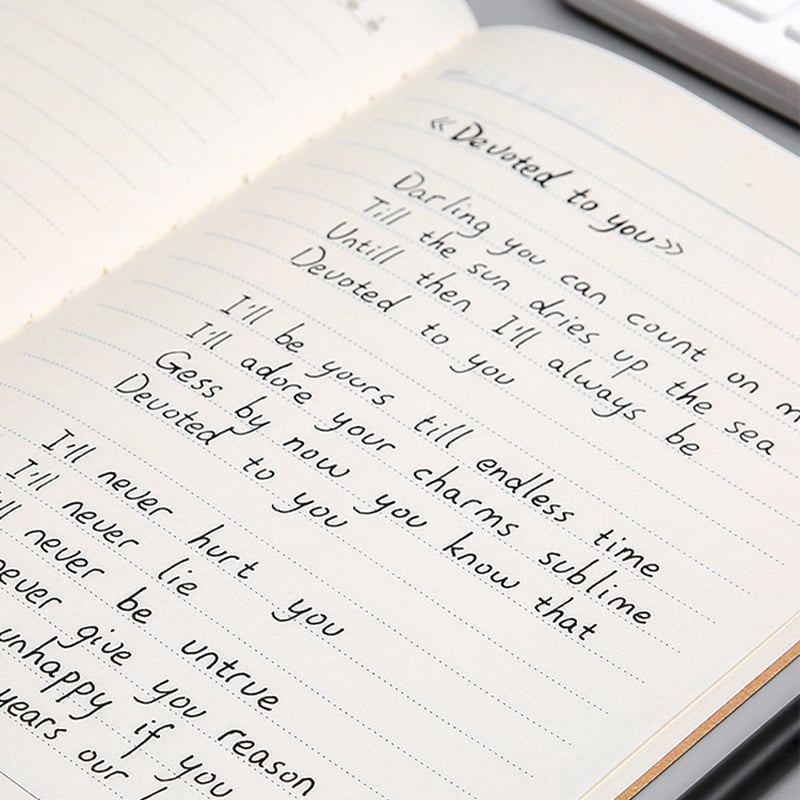 «Devoted to you»
Darling you can count on
Till the sun dries up the sea
Untill then I'll always be
Devoted to you
I'll be yours till endless time
I'll adore your charms sublime
Gess by now you know that
Devoted to you
I'll never hurt you
I'll never lie
I'll never be untrue
never give you reason
unhappy if you
years our